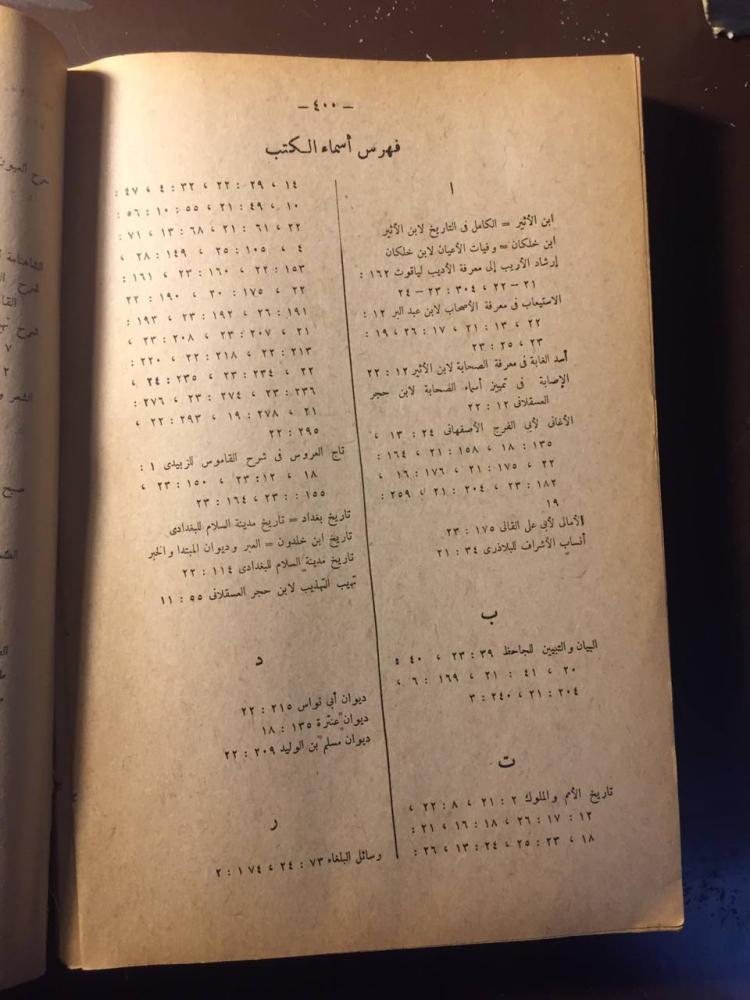 — ٤٠٠ —
فهرس أسماء الكتب
ا
ابن الأثير = الكامل فى التاريخ لابن الأثير
ابن خلكان = وفيات الأعيان لابن خلكان
إرشاد الأريب إلى معرفة الأديب لياقوت ١٦٢ :
٢١ – ٢٢ ، ٣٠٤ : ٢٣ – ٢٤
الاستيعاب فى معرفة الأصحاب لابن عبد البر ١٢ :
٢٢ ، ١٣ : ٢١ ، ١٧ : ٢٦ ، ١٩ :
٢٣ ، ٢٥ : ٢٣
أسد الغابة فى معرفة الصحابة لابن الأثير ١٢ : ٢٢
الإصابة فى تمييز أسماء الصحابة لابن حجر
العسقلانى ١٢ : ٢٢
الأغانى لأبى الفرج الأصفهانى ٢٤ : ١٣ ،
١٣٥ : ١٨ ، ١٥٨ : ٢١ ، ١٦٤ :
٢٢ ، ١٧٥ : ٢١ ، ١٧٦ : ١٦ ،
١٨٢ : ٢٣ ، ٢٠٤ : ٢١ ، ٢٥٩ :
١٩
الأمالى لأبى على القالى ١٧٥ : ٢٣
أنساب الأشراف للبلاذرى ٣٤ : ٢١
ب
البيان والتبيين للجاحظ ٣٩ : ٢٣ ، ٤٠ :
٢٠ ، ٤١ : ٢١ ، ١٦٩ : ٦ ،
٢٠٤ : ٢١ ، ٢٤٠ : ٣
ت
تاريخ الأمم والملوك ٢ : ٢١ ، ٨ : ٢٢ ،
١٢ : ١٧ : ٢٦ ، ١٨ : ١٦ ، ٢١ :
١٨ ، ٢٣ : ٢٥ ، ٢٤ : ١٣ ، ٢٦ :
١٤ ، ٢٩ : ٢٢ ، ٣٢ : ٤ ، ٤٧ :
١٠ ، ٤٩ : ٢١ ، ٥٥ : ١٠ ، ٥٦ :
٢٢ ، ٦١ : ٢١ ، ٦٨ : ١٣ ، ٧١ :
٤ ، ١٠٥ : ٢٥ ، ١٤٩ : ٢٨ ،
١٥٣ : ٢٢ ، ١٦٠ : ٢٣ ، ١٦١ :
٢٢ ، ١٧٥ : ٢٠ ، ١٩٠ : ٢٢
١٩١ : ٢٦ ، ١٩٢ : ٢٣ ، ١٩٣ :
٢١ ، ٢٠٧ : ٢٣ ، ٢٠٨ : ٢٣ ،
٢١٣ : ٢٢ ، ٢١٨ : ٢٢ ، ٢٢٠ :
٢٢ ، ٢٣٤ : ٢٣ ، ٢٣٥ : ٢٤ ،
٢٣٦ : ٢٣ ، ٢٧٤ : ٢٣ ، ٢٧٦ :
٢١ ، ٢٧٨ : ١٩ ، ٢٩٣ : ٢٢ ،
٢٩٥ : ٢٢
تاج العروس فى شرح القاموس للزبيدى ١ :
١٨ ، ١٢ : ٢٣ ، ١٥٠ : ٢٣ ،
١٥٥ : ٢٣ ، ١٦٤ : ٢٣
تاريخ بغداد = تاريخ مدينة السلام للبغدادى
تاريخ ابن خلدون = العبر وديوان المبتدا والخبر
تاريخ مدينة السلام للبغدادى ١١٤ : ٢٢
تهيب التهذيب لابن حجر العسقلانى ٥٥ : ١١
د
ديوان أبى نواس ٢١٥ : ٢٢
ديوان عنترة ١٣٥ : ١٨
ديوان مسلم بن الوليد ٢٠٩ : ٢٢
ر
رسائل البلغاء ٧٣ : ٢٤ ، ١٧٤ : ٢